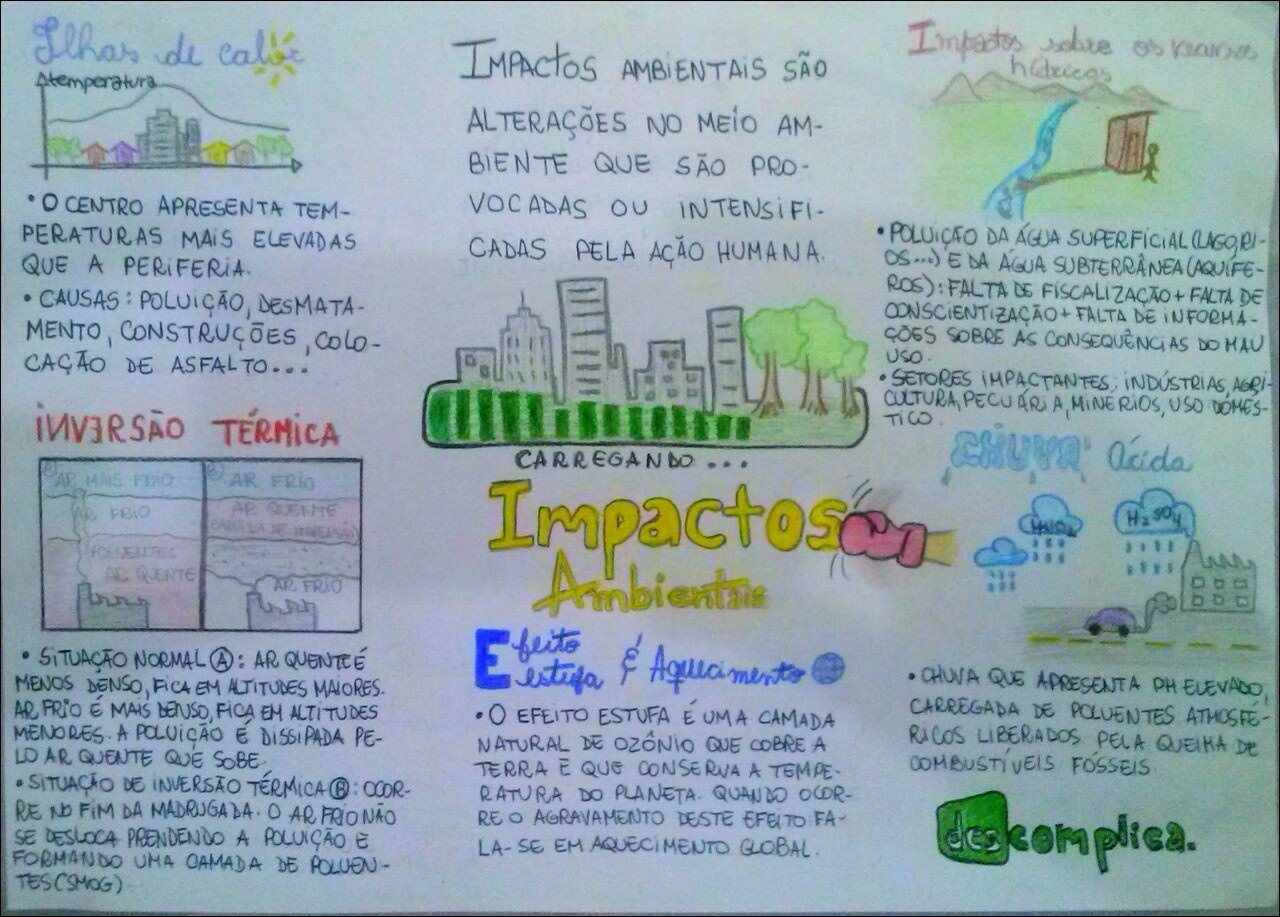 Ilhas de calor
temperatura
• O CENTRO APRESENTA TEM-
PERATURAS MAIS ELEVADAS
QUE A PERIFERIA.
• CAUSAS: POLUIÇÃO, DESMATA-
MENTO, CONSTRUÇÕES, COLO-
CAÇÃO DE ASFALTO...
INVERSÃO TÉRMICA
A
AR MAIS FRIO
AR FRIO
POLUENTES
AR QUENTE
B
AR FRIO
AR QUENTE
CAMADA DE INVERSÃO
AR FRIO
• SITUAÇÃO NORMAL A: AR QUENTE É
MENOS DENSO, FICA EM ALTITUDES MAIORES.
AR FRIO É MAIS DENSO, FICA EM ALTITUDES
MENORES. A POLUIÇÃO É DISSIPADA PE-
LO AR QUENTE QUE SOBE.
• SITUAÇÃO DE INVERSÃO TÉRMICA B: OCOR-
RE NO FIM DA MADRUGADA. O AR FRIO NÃO
SE DESLOCA PRENDENDO A POLUIÇÃO E
FORMANDO UMA CAMADA DE POLUEN-
TES (SMOG)
IMPACTOS AMBIENTAIS SÃO
ALTERAÇÕES NO MEIO AM-
BIENTE QUE SÃO PRO-
VOCADAS OU INTENSIFI-
CADAS PELA AÇÃO HUMANA.
CARREGANDO...
Impactos
Ambientais
Efeito
estufa & Aquecimento
• O EFEITO ESTUFA É UMA CAMADA
NATURAL DE OZÔNIO QUE COBRE A
TERRA E QUE CONSERVA A TEMPE-
RATURA DO PLANETA. QUANDO OCOR-
RE O AGRAVAMENTO DESTE EFEITO FA-
LA-SE EM AQUECIMENTO GLOBAL.
Impactos sobre os recursos
hídricos
• POLUIÇÃO DA ÁGUA SUPERFICIAL (LAGO, RI-
OS...) E DA ÁGUA SUBTERRÂNEA (AQUÍFE-
ROS): FALTA DE FISCALIZAÇÃO + FALTA DE
CONSCIENTIZAÇÃO + FALTA DE INFORMA-
ÇÕES SOBRE AS CONSEQUÊNCIAS DO MAU
USO.
• SETORES IMPACTANTES: INDÚSTRIAS, AGRI-
CULTURA, PECUÁRIA, MINERIOS, USO DOMÉS-
TICO.
CHUVA Ácida
H₂SO₄
• CHUVA QUE APRESENTA PH ELEVADO,
CARREGADA DE POLUENTES ATMOSFÉ-
RICOS LIBERADOS PELA QUEIMA DE
COMBUSTÍVEIS FÓSSEIS.
descomplica.